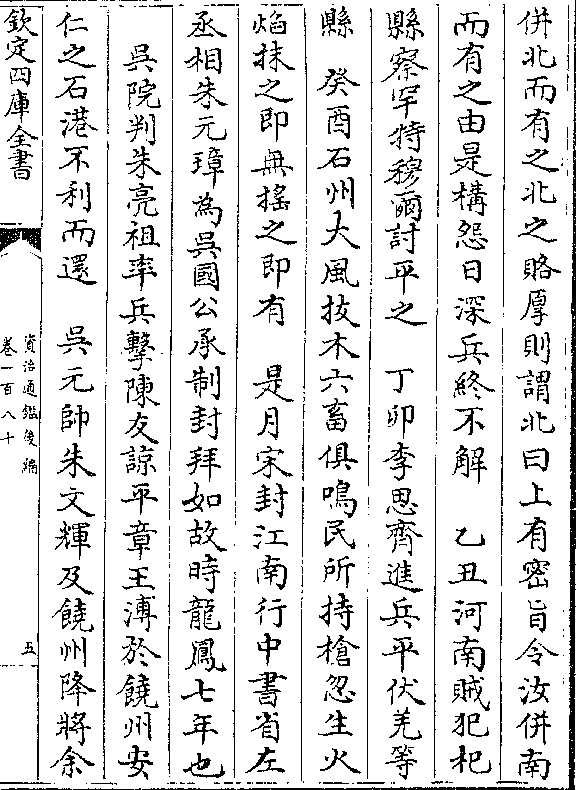 併北而有之北之賂厚則謂北曰上有密旨令汝併南
而有之由是構怨日深兵終不解　乙丑河南賊犯杞
縣察罕特穆爾討平之　丁卯李思齊進兵平伏羌等
縣　癸酉石州大風拔木六畜俱鳴民所持槍忽生火
焰抹之即無搖之即有　是月宋封江南行中書省左
丞相朱元璋為吳國公承制封拜如故時龍鳳七年也
吳院判朱亮祖率兵擊陳友諒平章王溥於饒州安
仁之石港不利而還　吳元帥朱文輝及饒州降將余
欽定四庫全書
資治通鑑後編
卷一百八十
五